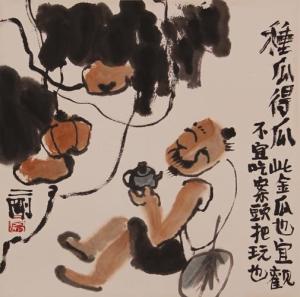 種瓜得瓜 此金瓜也宜觀
不宜吃案頭把玩也
二剛